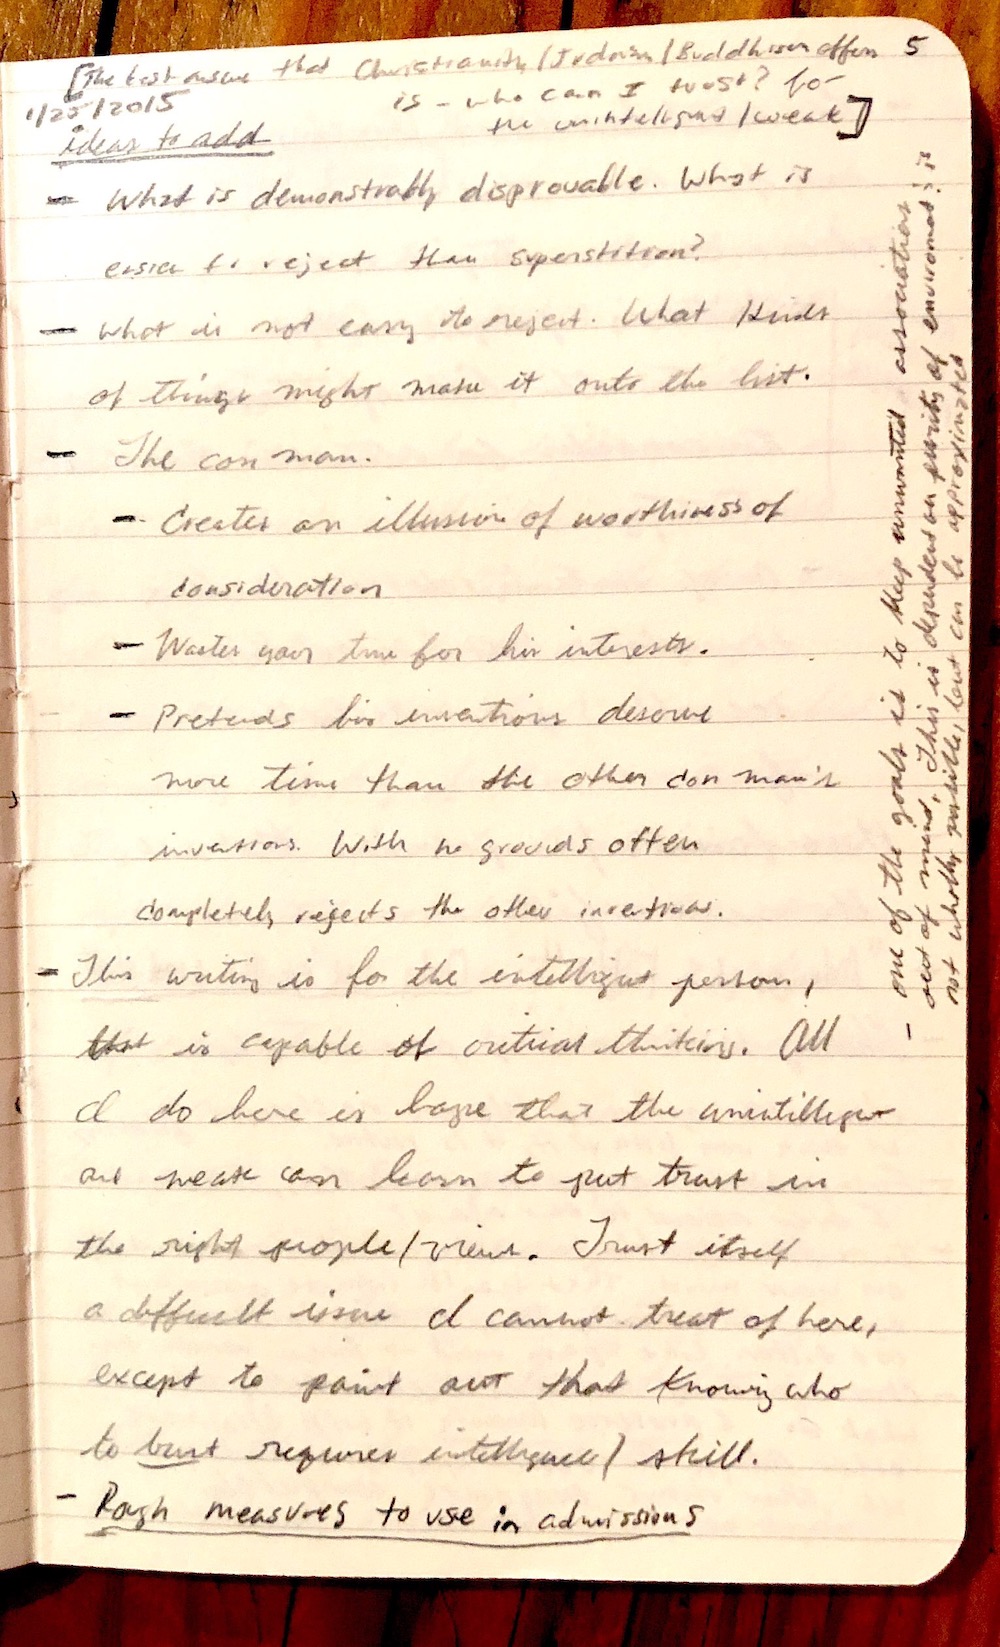 [The best answer that Christianity/Judaism/Buddhism offers 5
1/25/2015 is - who can I trust? for
the unintelligent/weak]
ideas to add
- What is demonstrably disprovable. What is
easier to reject than superstition?
- what is not easy to reject. What kinds
of things might make it onto the list.
- The con man.
- Creates an illusion of worthiness of
consideration
- Wastes your time for his interests.
- Pretends his inventions deserve
more time than the other con man's
inventions. With no grounds often
completely rejects the other inventions.
- This writing is for the intelligent person,
that is capable of critical thinking. All
I do here is hope that the unintelligent
and weak can learn to put trust in
the right people/views. Trust itself
a difficult issue I cannot treat of here,
except to point out that knowing who
to trust requires intelligence/skill.
- Rough measures to use in admissions
- one of the goals is to keep unwanted associations
out of mind. This is dependent on purity of environment; is
not wholly possible, but can be approximated